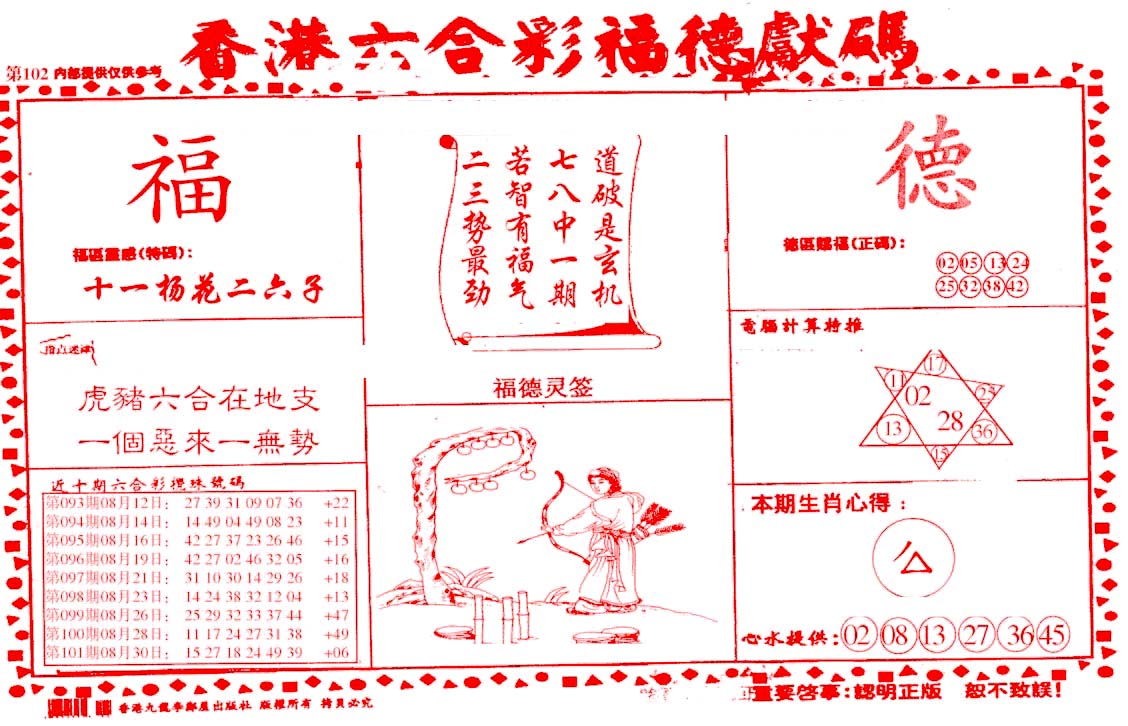 香港六合彩福德獻碼
第102 内部提供仅供参考
福
福區靈感(特碼):
十一杨花二六子
道破是玄机
七八中一期
若智有福气
二三势最劲
德
德區賜福(正碼):
02 05 13 24
25 32 38 42
虎豬六合在地支
一個惡來一無勢
電腦計算特推
17
11 02 25
28
13 36
15
福德灵签
近十期六合彩攪珠號碼
第093期08月12日: 27 39 31 09 07 36 +22
第094期08月14日: 14 49 04 49 08 23 +11
第095期08月16日: 42 27 37 23 26 46 +15
第096期08月19日: 42 27 02 46 32 05 +16
第097期08月21日: 31 10 30 14 29 26 +18
第098期08月23日: 14 24 38 32 12 04 +13
第099期08月26日: 25 29 32 33 37 44 +47
第100期08月28日: 11 17 24 27 31 38 +49
第101期08月30日: 15 27 18 24 49 39 +06
本期生肖心得:
心水提供: 02 08 13 27 36 45
香港九龍李鄭屋出版社 版權所有 拷貝必究
重要啓事:認明正版 恕不致誤!